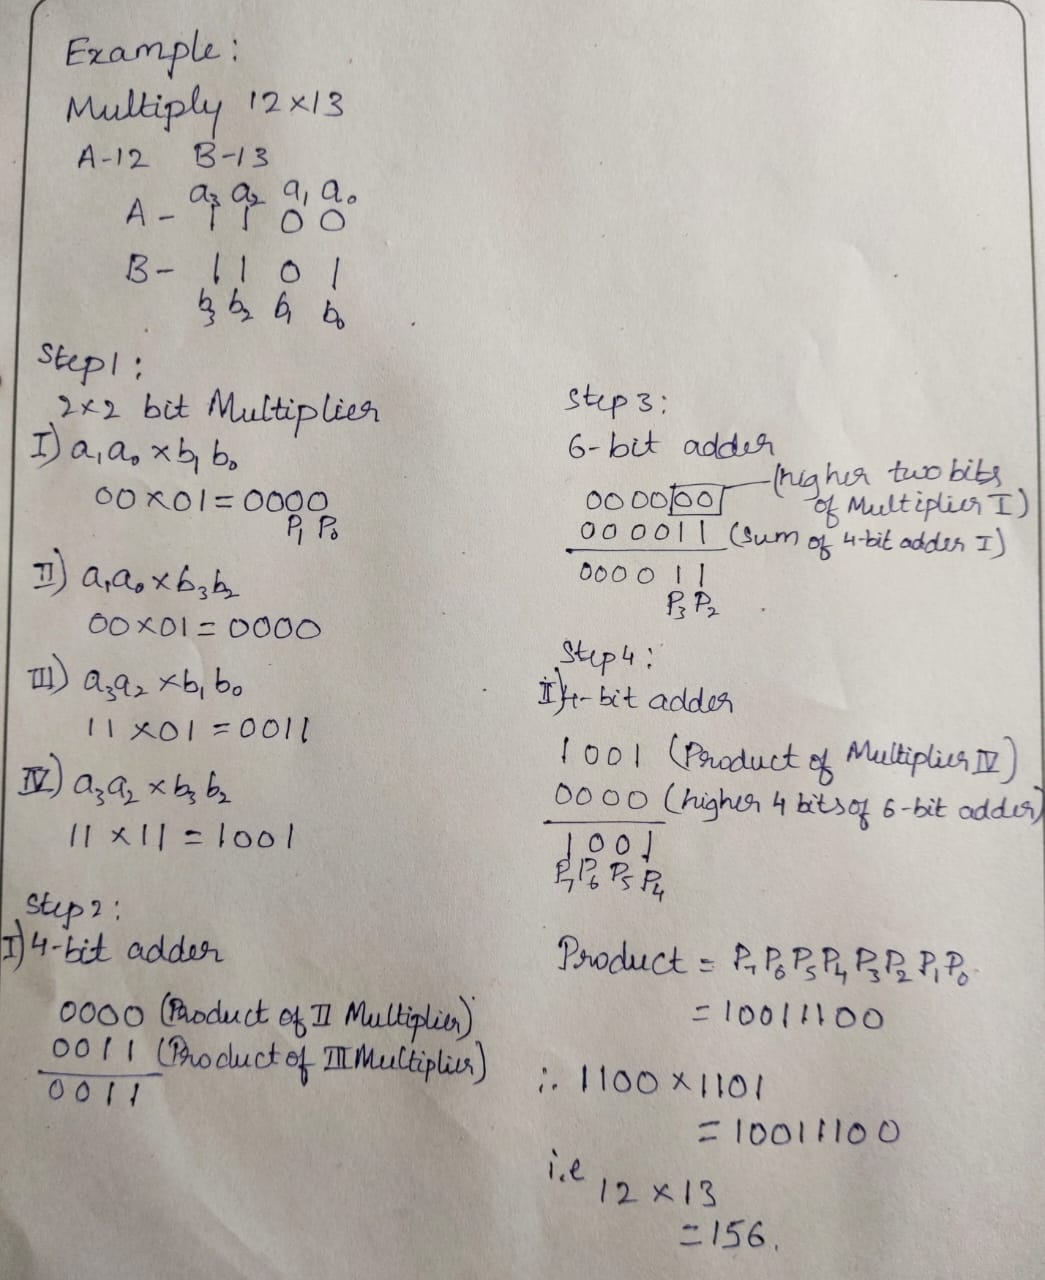 Example:
Multiply 12×13
A-12 B-13
a₃ a₂ a₁ a₀
A - 1 1 0 0
B - 1 1 0 1
b₃ b₂ b₁ b₀
Step1:
2×2 bit Multiplier
I) a₁a₀ × b₁ b₀
00 × 01 = 0000
P₁ P₀
II) a₁a₀ × b₃b₂
00×01 = 0000
III) a₃a₂ × b₁ b₀
11 × 01 = 0011
IV) a₃a₂ × b₃ b₂
11 × 11 = 1001
Step 2:
I) 4-bit adder
0000 (Product of II Multiplier)
0011 (Product of III Multiplier)
0011
Step 3:
6-bit adder
000000 (higher two bits
of Multiplier I)
000011 (Sum of 4-bit adder I)
000011
P₃ P₂
Step 4:
II) 4-bit adder
1001 (Product of Multiplier IV)
0000 (higher 4 bits of 6-bit adder)
1001
P₇ P₆ P₅ P₄
Product = P₇ P₆ P₅ P₄ P₃ P₂ P₁ P₀
= 10011100
∴ 1100 × 1101
= 10011100
i.e
12 × 13
= 156.